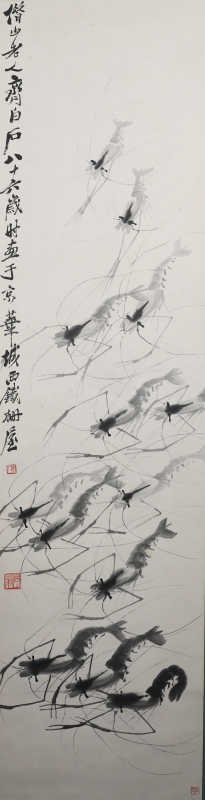 借山老人齊白石八十六歲時畫于京華城西鐵柵屋